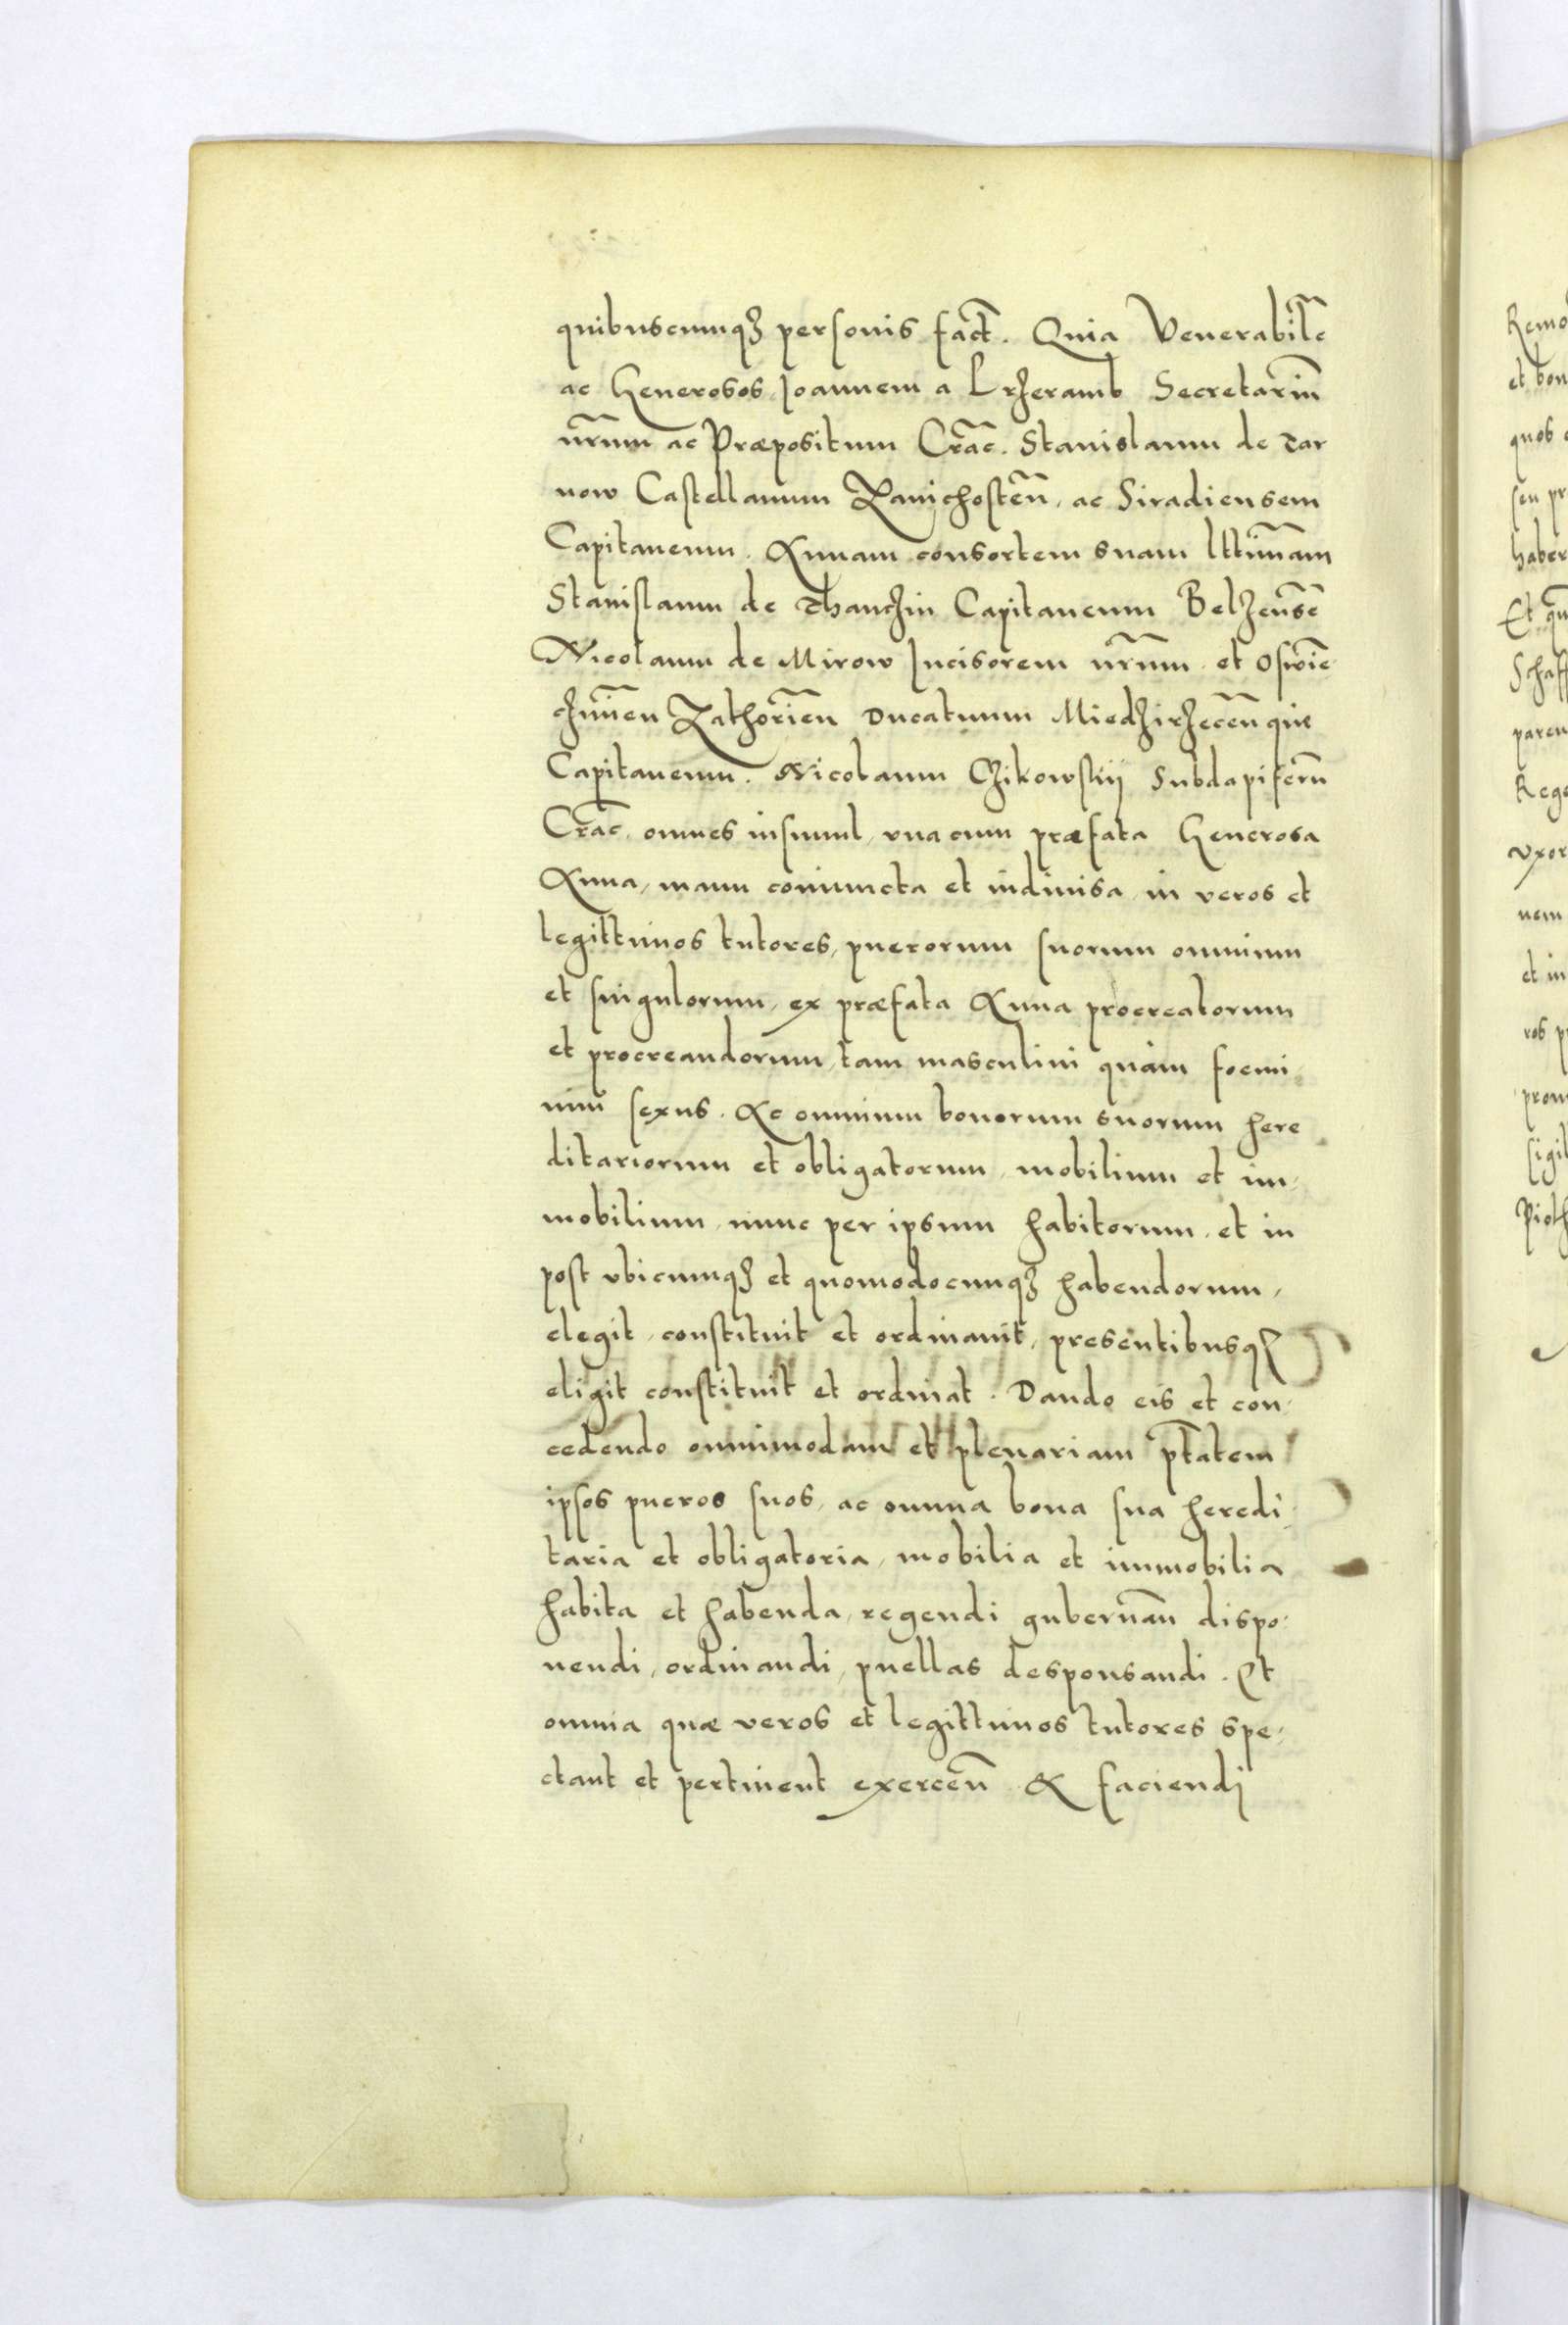 quibuscumqꝫ personis fact̃. Quia Venerabil̃e
ac Generosos Ioannem a Przeramb Secretariũ
nr̃um ac Præpositum Crac̃. Stanislaum de Tar
now Castellanum Zawichosteñ. ac Siradiensem
Capitaneum. Annam consortem suam lttim̃am
Stanislaum de Thanczin Capitaneum Belzens̃e
Nicolaum de Mirow Incisorem nr̃um. et Oswie
czim̃en Zathoriẽn Ducatuum Miedzirzeceñ quę
Capitaneum. Nicolaum Czikowskij Subdapiferũ
Crac̃ omnes insimul, vna cum præfata Generosa
Anna, manu coniuncta et indiuisa, in veros et
legittimos tutores, puerorum suorum omnium
et singulorum, ex præfata Anna procreatorum
et procreandorum, tam masculini quàm foemi
nini sexus. Ac omnium bonorum suorum here
ditariorum et obligatorum, mobilium et im,
mobilium, nunc per ipsum habitorum, et in
post vbicumqꝫ et quomodocunqꝫ habendorum,
elegit, constituit et ordinauit, presentibusqꝫ
eligit constituit et ordinat. Dando eis et con,
cedendo omnimodam et plenariam pt̃atem
ipsos pueros suos, ac omnia bona sua heredi,
taria et obligatoria, mobilia et immobilia
habita et habenda, regendi gubernañ dispo,
nendi, ordinandi, puellas desponsandi. Et
omnia quæ veros et legittimos tutores spe,
ctant et pertinent exerceñ & faciendi